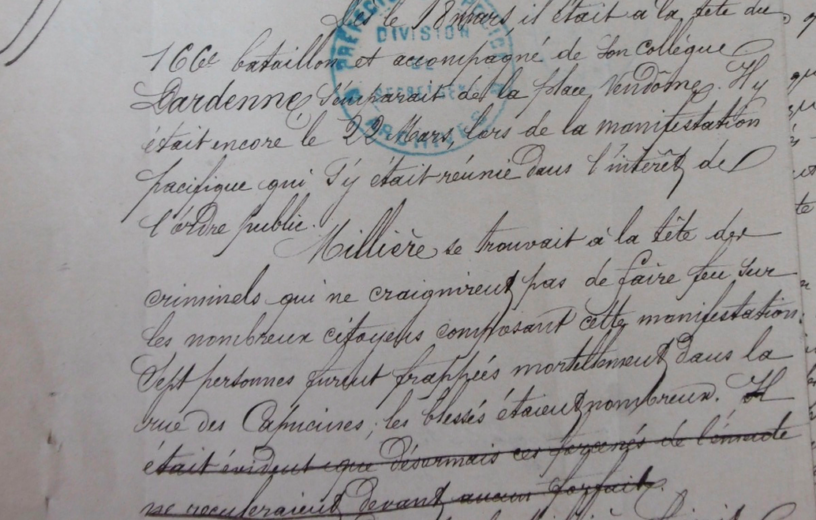 Dès le 18 mars, il était à la tête du
166e bataillon et accompagné de son collègue
Dardenne s'emparait de la place Vendôme. Il y
était encore le 22 Mars, lors de la manifestation
pacifique qui s'y était réunie dans l'intérêt de
l'ordre public.
Millière se trouvait à la tête des
criminels qui ne craignirent pas de faire feu sur
les nombreux citoyens composant cette manifestation.
Sept personnes furent frappées mortellement dans la
rue des Capucines, les blessés étaient nombreux. Il
était évident que désormais ces forcenés de l'émeute
ne reculeraient devant aucun forfait.
PRÉFECTURE POLICE
DIVISION
ARCHIVES